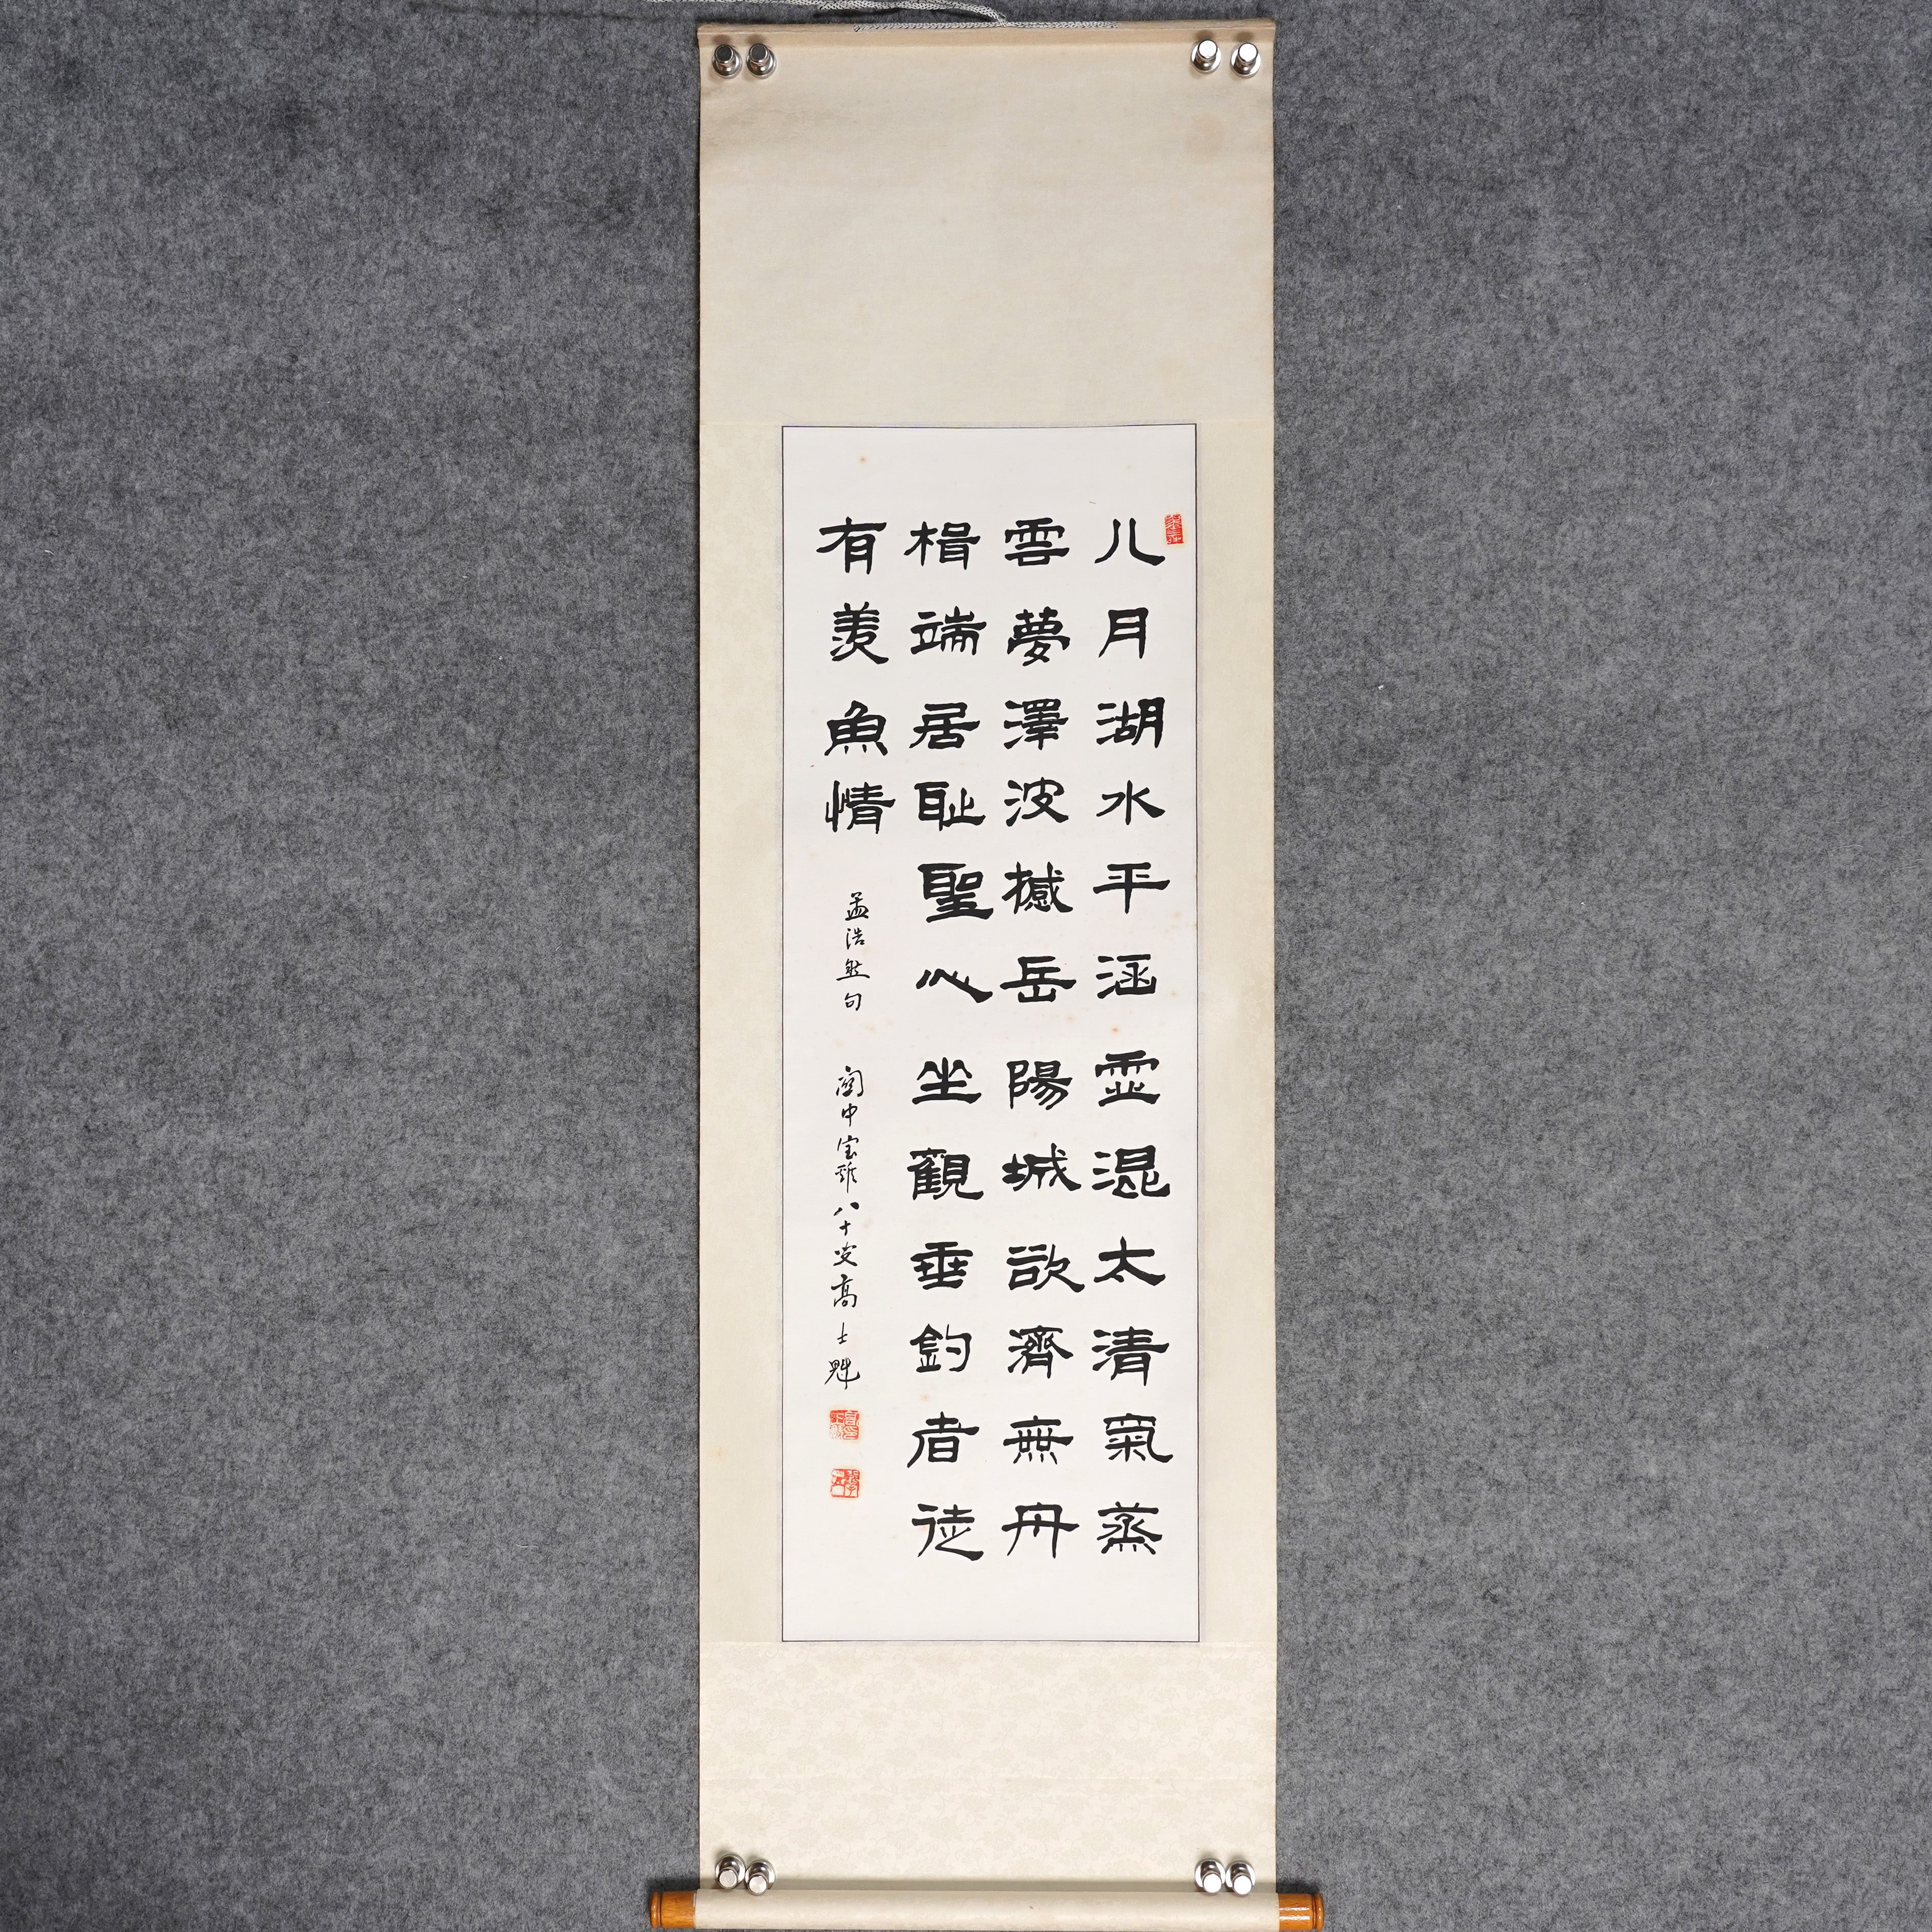 八月湖水平涵虛混太清氣蒸
雲夢澤波撼岳陽城欲濟無舟
楫端居耻聖心坐觀垂釣者徒
有羨魚情 孟浩然句 関中宝雞八十叟高士魁